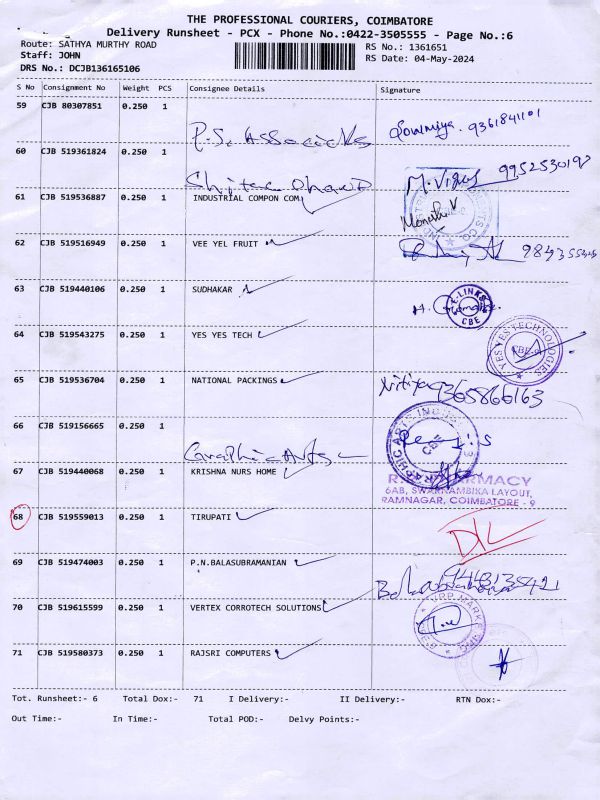 THE PROFESSIONAL COURIERS, COIMBATORE
Delivery Runsheet - PCX - Phone No.:0422-3505555 - Page No.:6
Route: SATHYA MURTHY ROAD
RS No.: 1361651
Staff: JOHN
RS Date: 04-May-2024
DRS No.: DCJB136165106
S No Consignment No Weight PCS Consignee Details Signature
59 CJB 80307851 0.250 1
P.S. Associcks
Sowmiya. 9361841101
60 CJB 519361824 0.250 1
M. Vignes 9952530197
61 CJB 519536887 0.250 1 INDUSTRIAL COMPON COM
62 CJB 519516949 0.250 1 VEE YEL FRUIT
63 CJB 519440106 0.250 1 SUDHAKAR
E-LINKS
CBE
64 CJB 519543275 0.250 1 YES YES TECH
YES YES TECHNOLOGIES
65 CJB 519536704 0.250 1 NATIONAL PACKINGS
9365866163
66 CJB 519156665 0.250 1
Graphic Arts
GRAPHIC ARTS INDUS
67 CJB 519440068 0.250 1 KRISHNA NURS HOME
PHARMACY
6AB, SWARNAMBIKA LAYOUT,
RAMNAGAR, COIMBATORE - 9
68 CJB 519559013 0.250 1 TIRUPATI
D/L
69 CJB 519474003 0.250 1 P.N.BALASUBRAMANIAN
70 CJB 519615599 0.250 1 VERTEX CORROTECH SOLUTIONS
71 CJB 519580373 0.250 1 RAJSRI COMPUTERS
Tot. Runsheet:- 6 Total Dox:- 71 I Delivery:- II Delivery:- RTN Dox:-
Out Time:- In Time:- Total POD:- Delvy Points:-